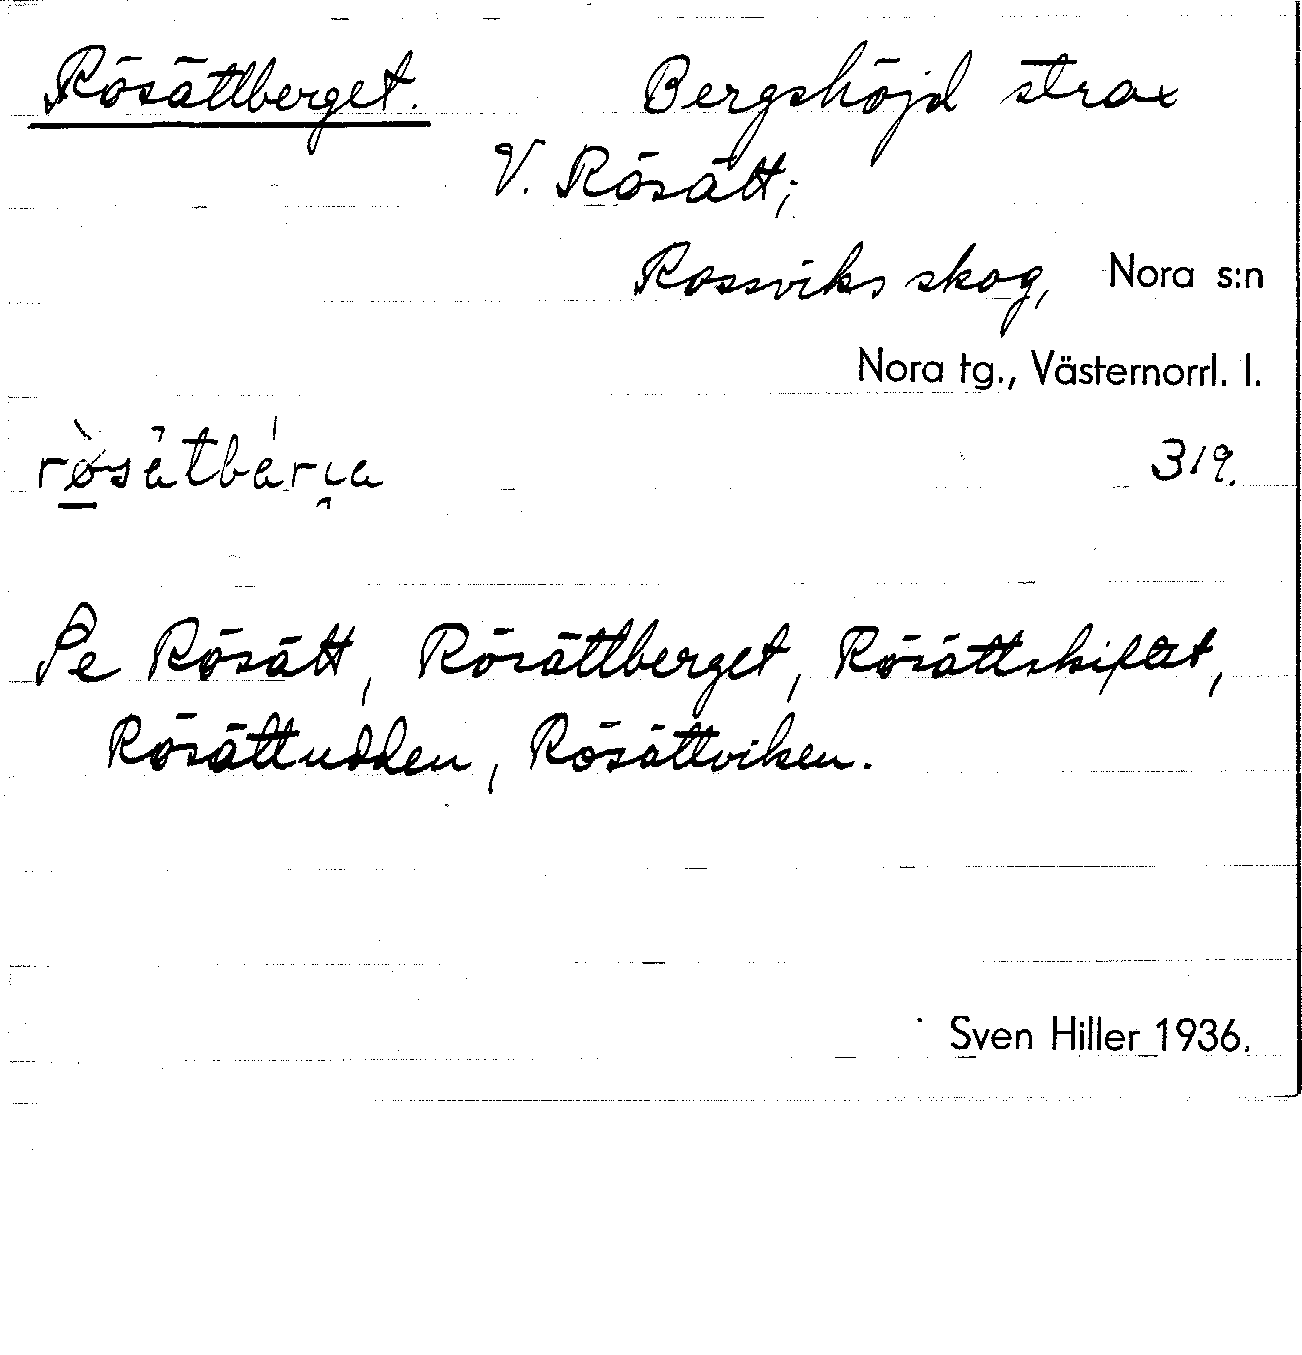 Rösättberget. Bergshöjd strax
V. Rösätt;
Rossviks skog, Nora s:n
Nora tg., Västernorrl. l.
319.
Se Rösätt, Rösättberget, Rösättskiftet,
Rösättudden, Rösättviken.
Sven Hiller 1936.